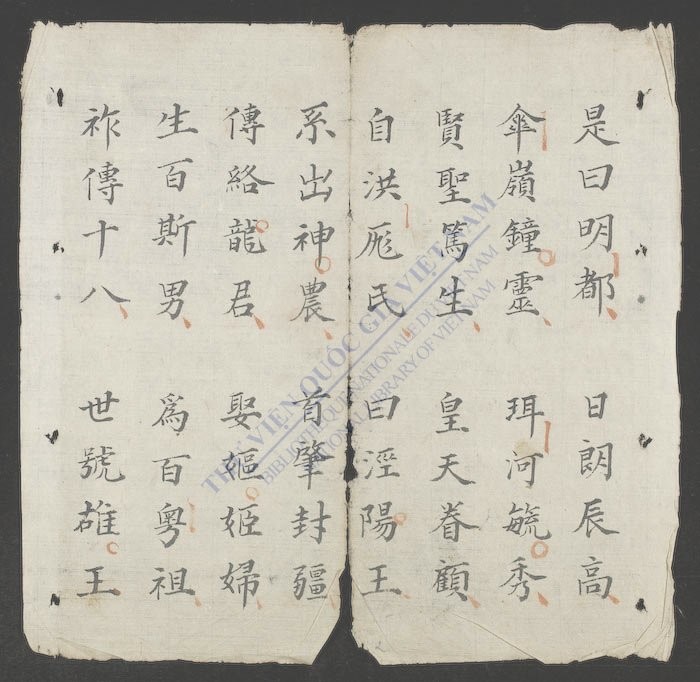 是曰明都 日朗辰高
傘嶺鐘靈 珥河毓秀
賢聖篤生 皇天眷顧
自洪厖民 曰涇陽王
系出神農 首肇封疆
傳絡龍君 娶嫗姬婦
生百斯男 為百粵祖
祚傳十八 世號雄王
THƯ VIỆN QUỐC GIA VIỆT NAM
BIBLIOTHEQUE NATIONALE DU VIETNAM
NATIONAL LIBRARY OF VIETNAM